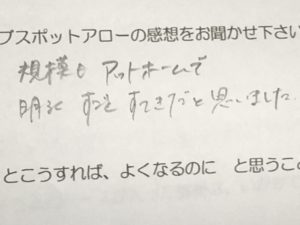 ブスポットアローの感想をお聞かせ下さい
規模も アットホームで
明るく すごく すてきだと思いました.
とこうすれば、よくなるのに と思うこ